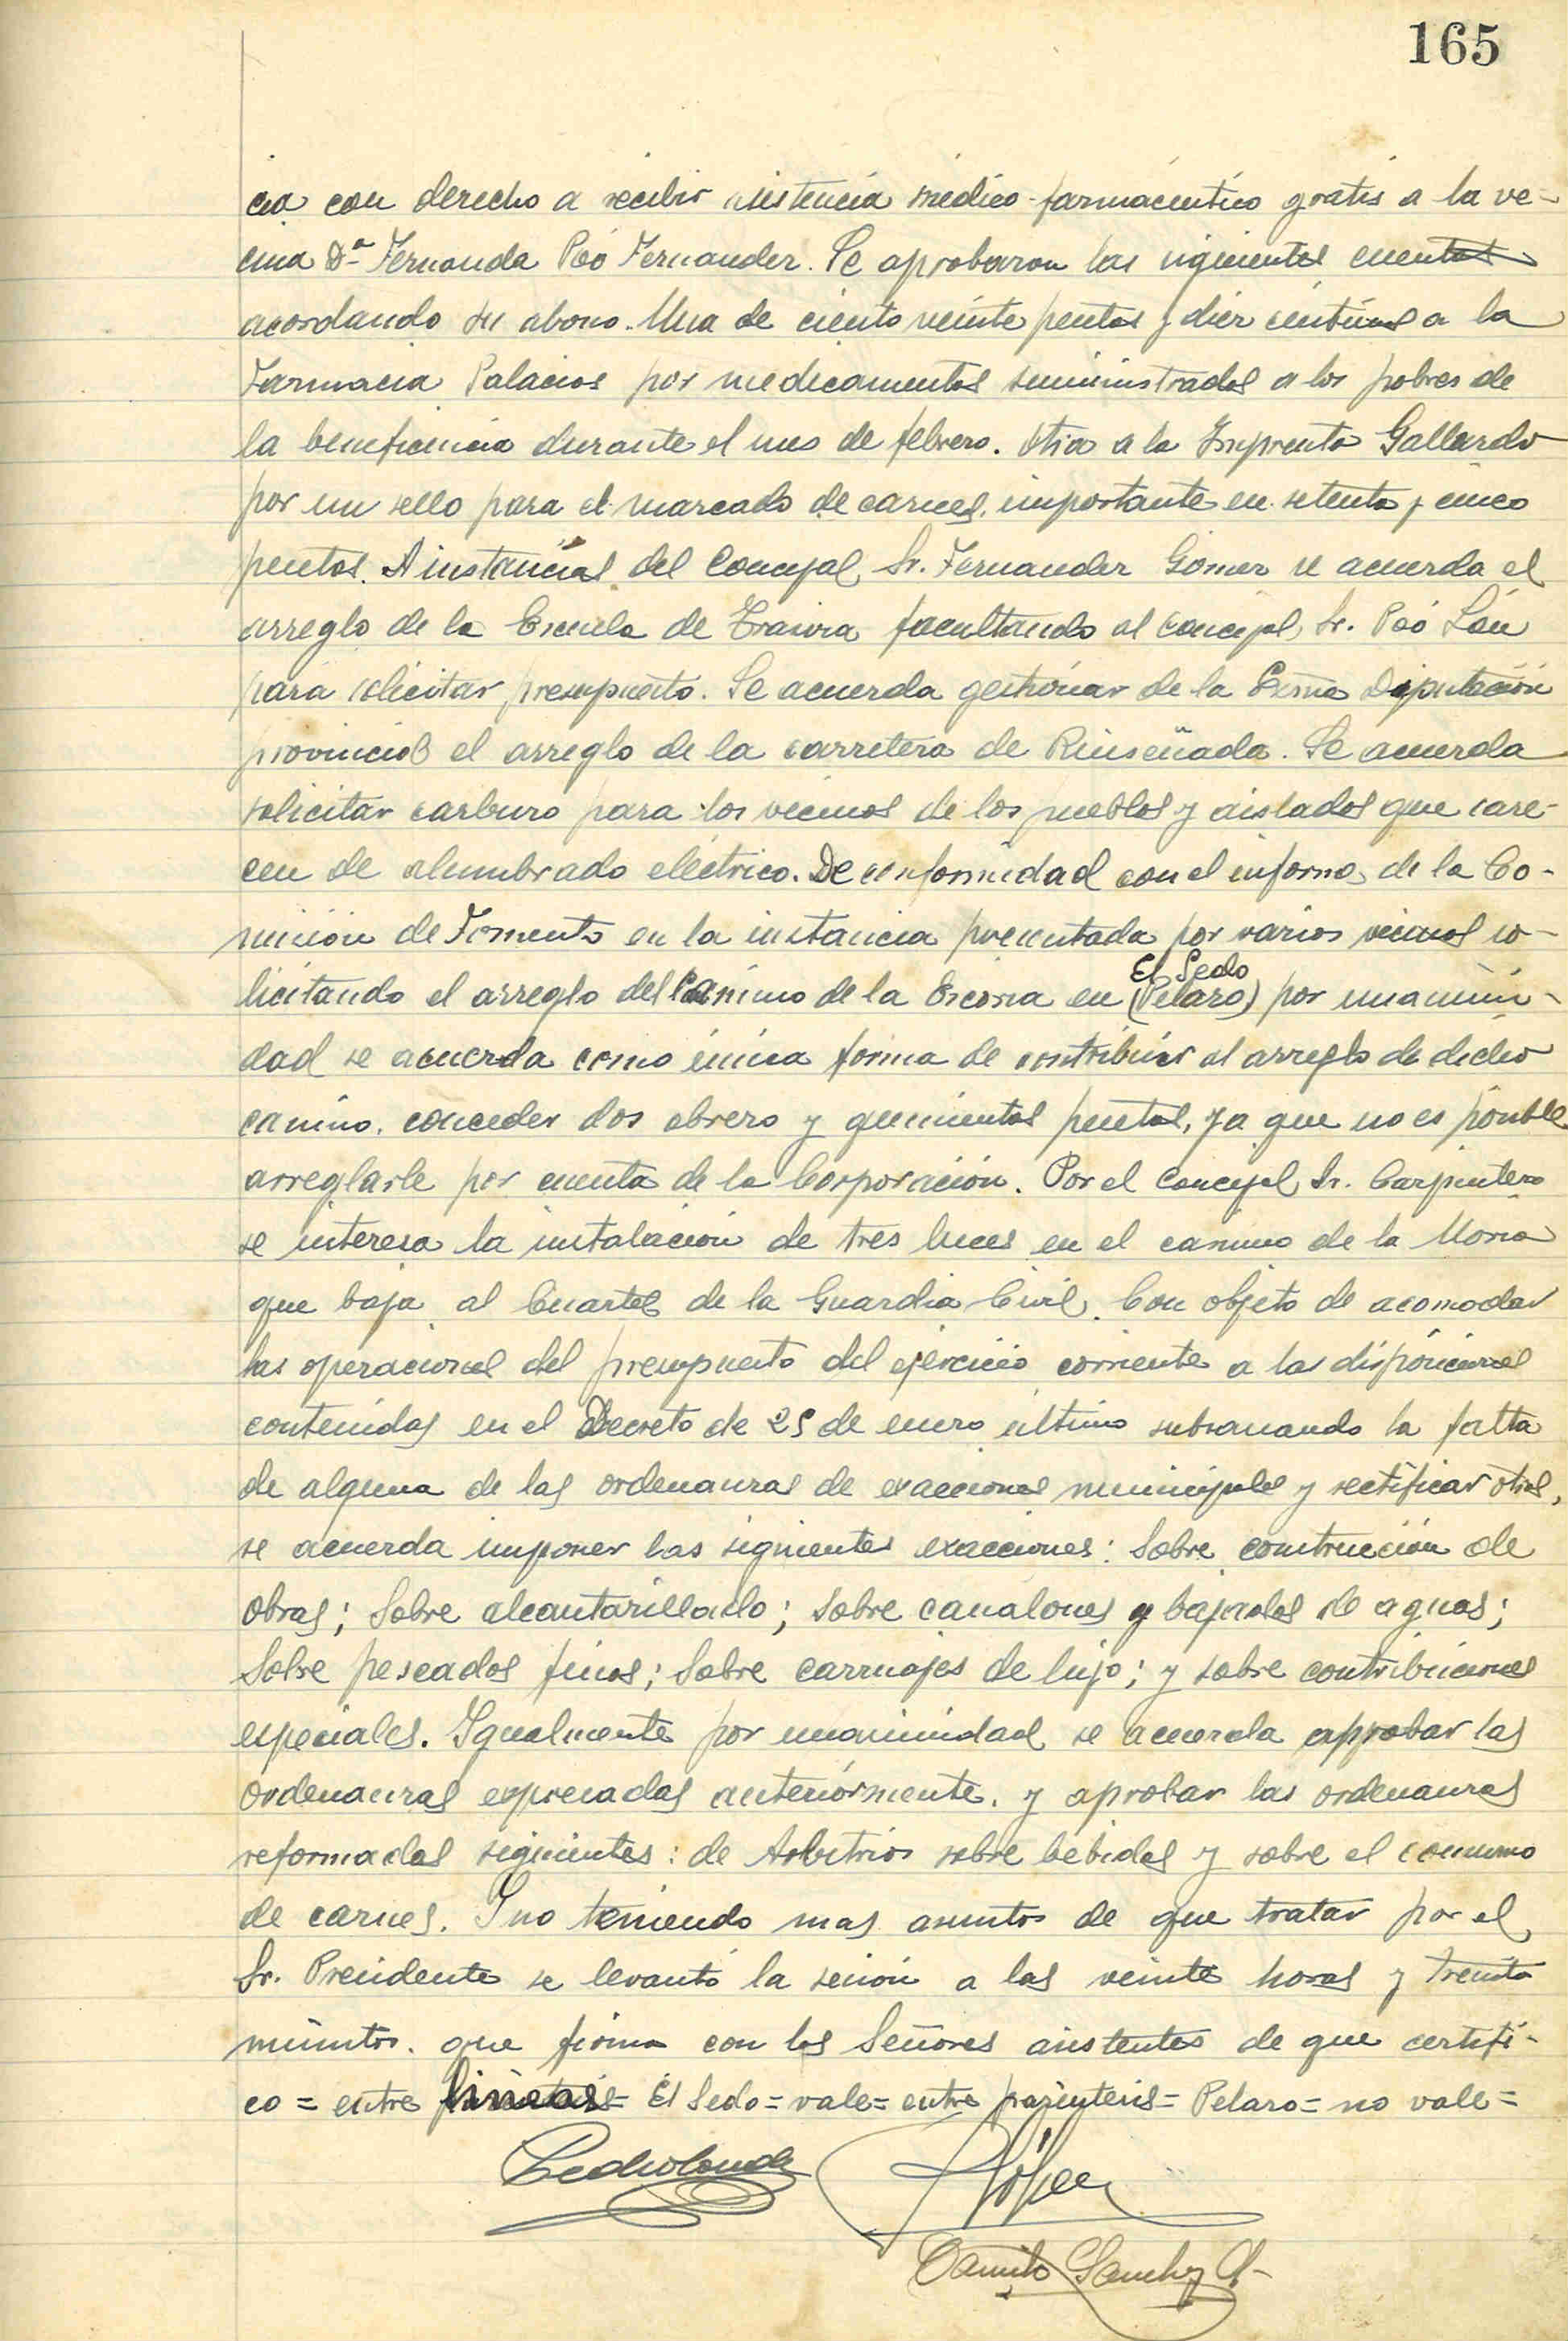 165
cia con derecho a recibir asistencia médico-farmacéutico gratis a la ve-
cina Dª Fernanda Poó Fernandez. Se aprobaron las siguientes cuentas
acordando su abono. Una de ciento veinte pesetas y diez céntimos a la
Farmacia Palacios por medicamentos suministrados a los pobres de
la beneficencia durante el mes de febrero. Otra a la Imprenta Gallardo
por un sello para el marcado de carnes, importante en setenta y cinco
pesetas. A instancias del Concejal Sr. Fernandez Gomez se acuerda el
arreglo de la Escuela de facultando al concejal Sr. Poó
para solicitar presupuesto. Se acuerda gestionar de la Exma Diputación
provincial el arreglo de la carretera de Rinseñada. Se acuerda
solicitar carburo para los vecinos de los pueblos y aislados que care-
cen de alumbrado eléctrico. De conformidad con el informe de la Co-
misión de Fomento en la instancia presentada por varios vecinos so-
licitando el arreglo del Camino de la en El Sedo (Pelaro) por unanimi-
dad se acuerda como única forma de contribuir al arreglo de dicho
camino, conceder dos obrero y quinientas pesetas, ya que no es posible
arreglarle por cuenta de la Corporación. Por el Concejal Sr. Carpintero
se interesa la instalación de tres luces en el camino de la
que baja al Cuartel de la Guardia Civil. Con objeto de acomodar
las operaciones del presupuesto del ejercicio corriente a las disposiciones
contenidas en el Decreto de 25 de enero último subsanando la falta
de alguna de las ordenanzas de exacciones municipales y rectificar otras,
se acuerda imponer las siguientes exacciones: Sobre construcción de
obras; Sobre alcantarillado; Sobre canalones y bajadas de aguas;
Sobre pescados finos; Sobre carruajes de lujo; y sobre contribuciones
especiales. Igualmente por unanimidad se acuerda aprobar las
ordenanzas expresadas anteriormente, y aprobar las ordenanzas
reformadas siguientes: de Arbitrios sobre bebidas y sobre el consumo
de carnes. Y no teniendo mas asuntos de que tratar por el
Sr. Presidente se levantó la sesión a las veinte horas y treinta
minutos. que firma con los Señores asistentes de que certifi-
co = entre lineas = El Sedo = vale = entre paréntesis = Pelaro = no vale =
Camilo Sanchez